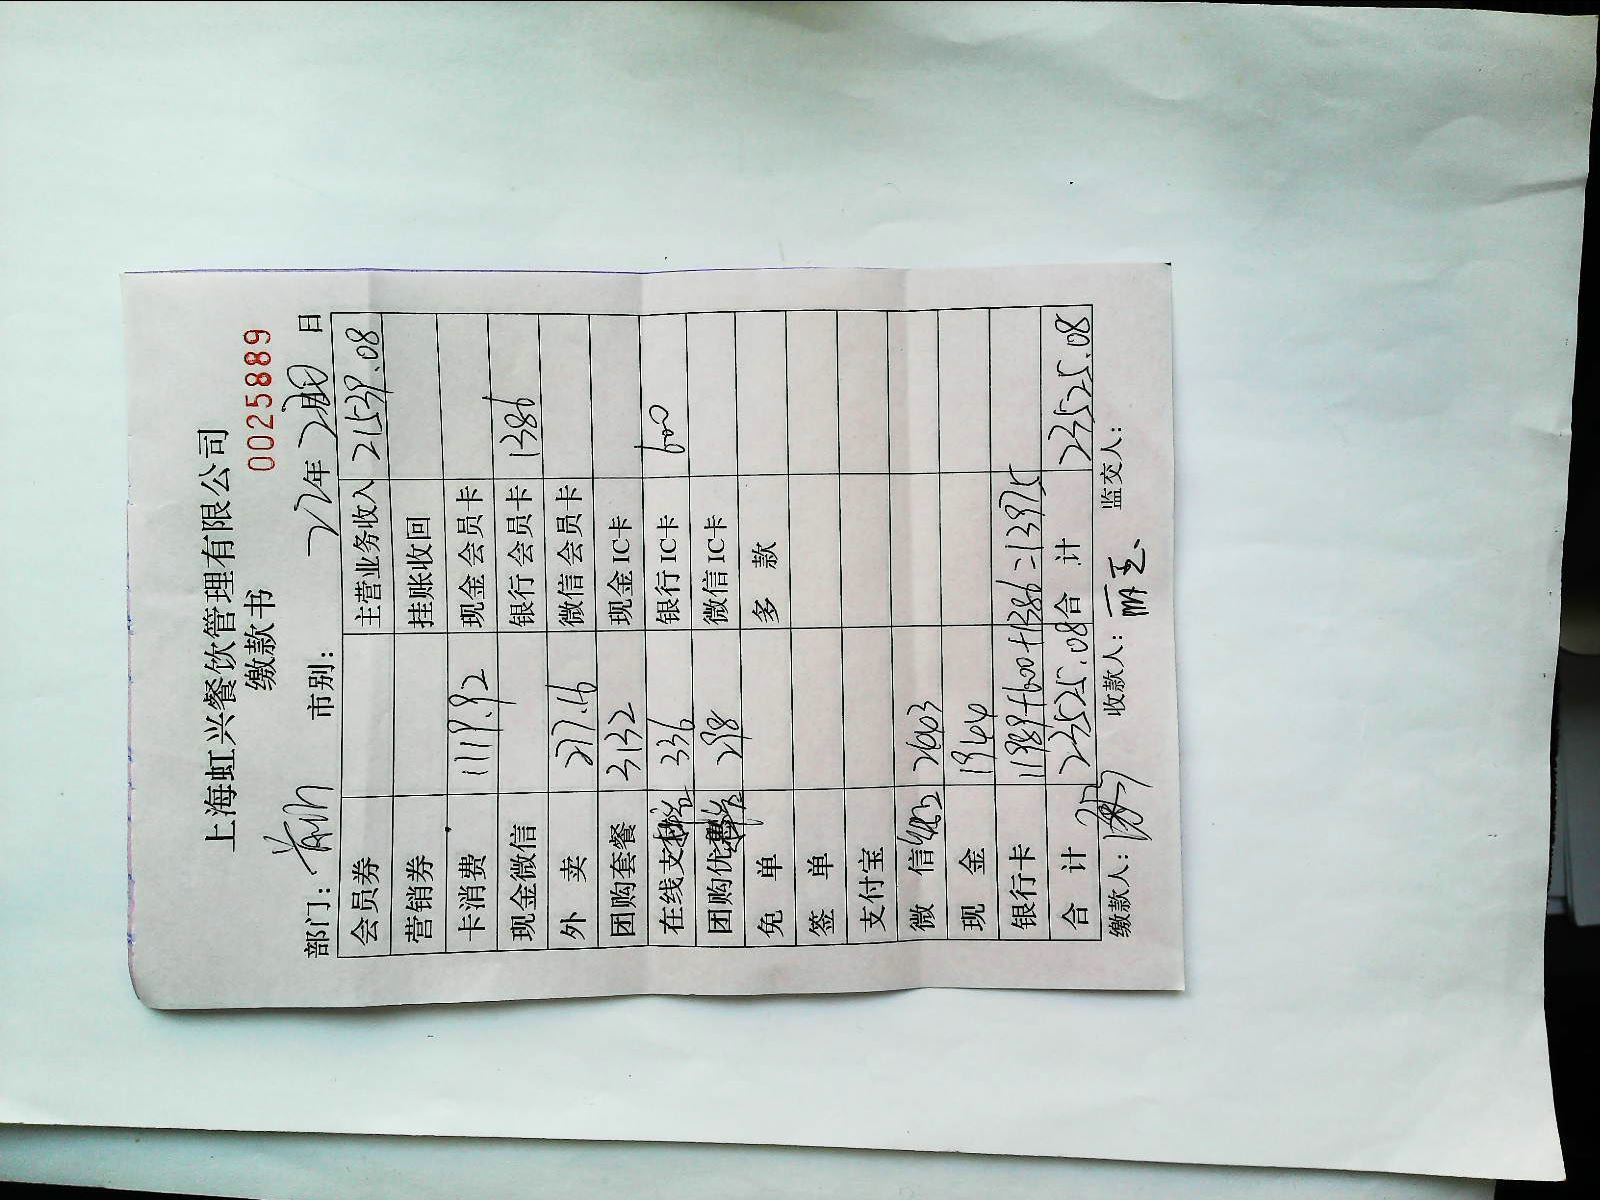 上海虹兴餐饮管理有限公司
缴款书 0025889
部门: 市别: 22年 日
会员券 主营业务收入 21539.08
营销券 挂账收回
卡消费 1119.92 现金会员卡
现金微信 银行会员卡 1386
外卖 277.16 微信会员卡
团购套餐 3132 现金IC卡
在线支 336 银行IC卡 600
团购优 298 微信IC卡
免单 多款
签单
支付宝
微信
现金 1944
银行卡 11989+600+1386=13975
合计 23525.08 合计 23525.08
缴款人: 收款人: 监交人: